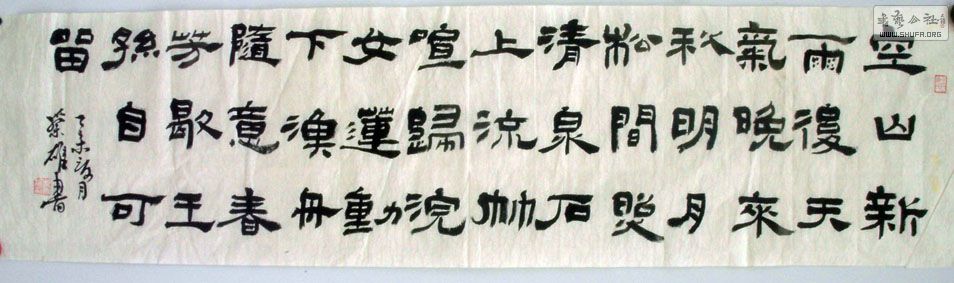 空山新
雨後天
氣晚來
秋明月
松間照
清泉石
上流竹
喧歸浣
女蓮動
下漁舟
隨意春
芳歇王
孫自可
留
月
榮雄書
書藝公社
WWW.SHUFA.ORG